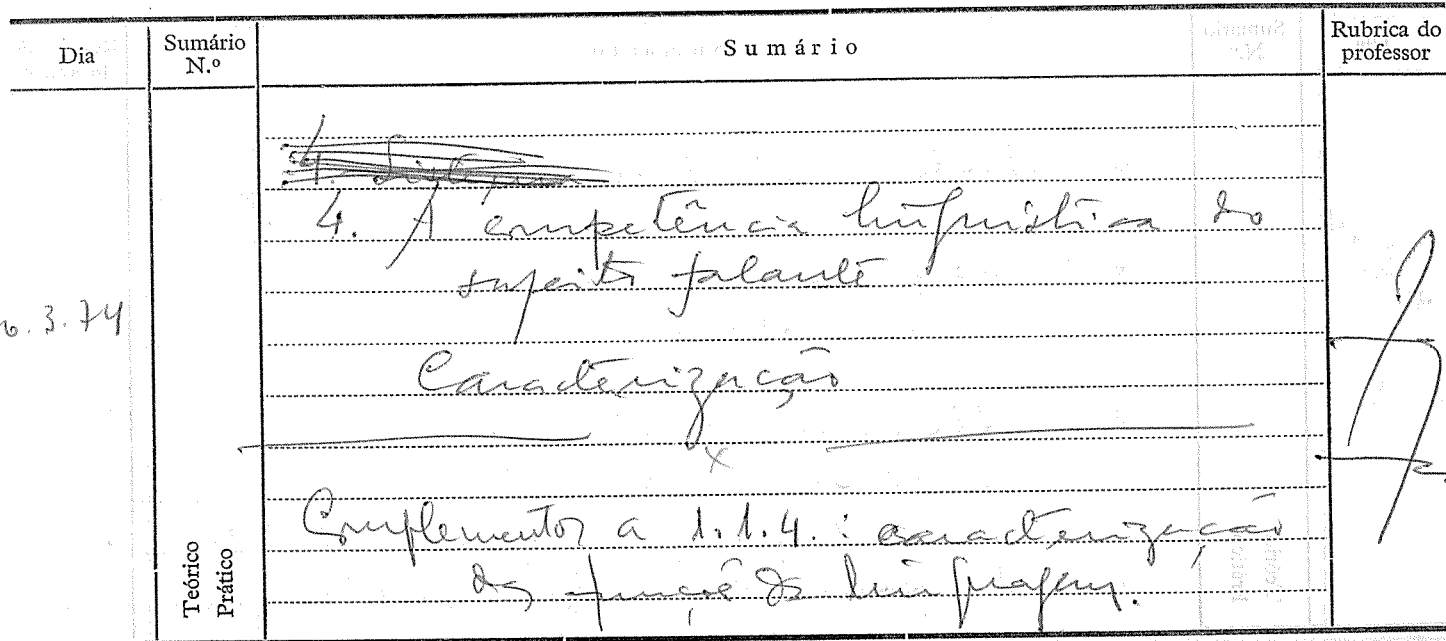 Dia
Sumário N.º
Sumário
Rubrica do professor
4.
4. A competência linguística do
sujeito falante
6.3.74
Caracterização
x
Complementos a 1.1.4. : caracterização
das funções da linguagem.
Teórico
Prático